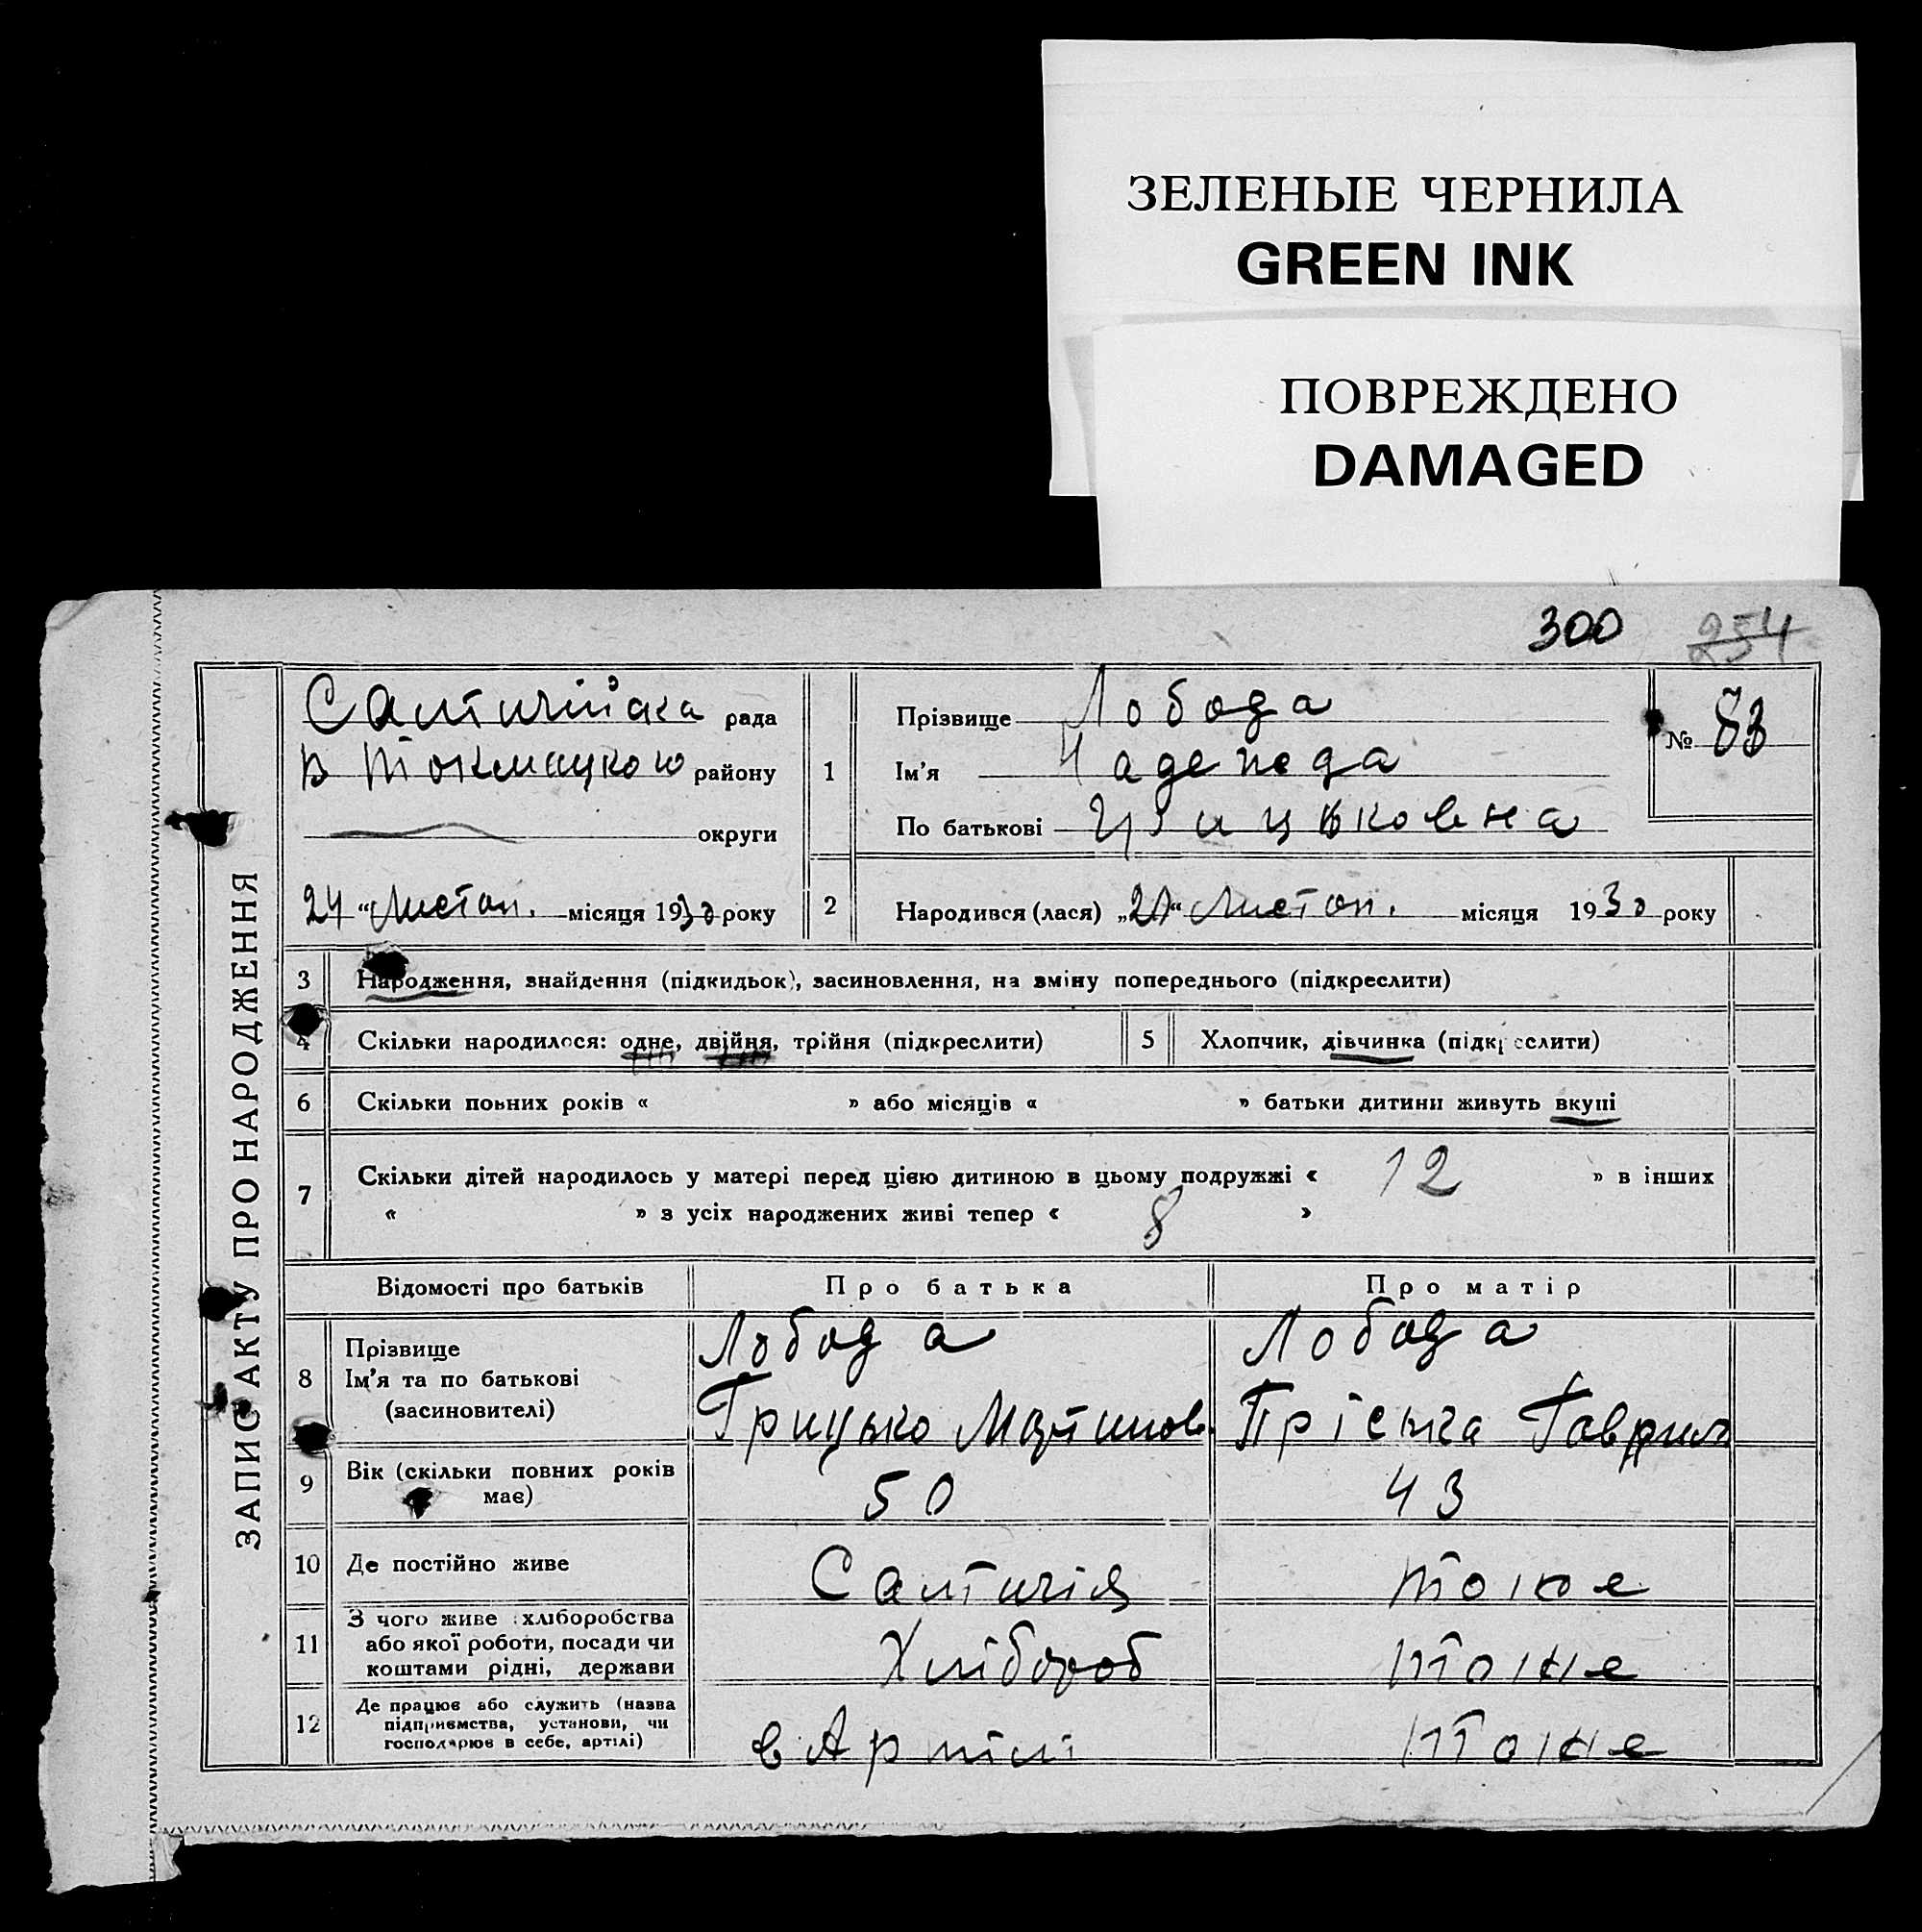 ЗЕЛЕНЫЕ ЧЕРНИЛА
GREEN INK
ПОВРЕЖДЕНО
DAMAGED
300 254
ЗАПИС АКТУ ПРО НАРОДЖЕННЯ
Салтичійська рада
В Токмацкою району
округи
24 “ Листоп. місяця 1930 року
1
Прізвище Лобода
Ім’я Надежда
По батькові Грицьковна
№ 83
2 Народився (лася) „20“ Листоп. місяця 1930 року
3 Народження, знайдення (підкидьок), засиновлення, на зміну попереднього (підкреслити)
4 Скільки народилося: одне, двійня, трійня (підкреслити)
5 Хлопчик, дівчинка (підкреслити)
6 Скільки повних років « » або місяців « » батьки дитини живуть вкупі
7 Скільки дітей народилось у матері перед цією дитиною в цьому подружжі « 12 » в інших
« » з усіх народжених живі тепер « 8 »
Відомості про батьків Про батька Про матір
8 Прізвище Лобода Лобода
Ім’я та по батькові Грицько Пріська Гаврил
(засиновителі)
9 Вік (скільки повних років має) 50 43
10 Де постійно живе Салтичія тоже
11 З чого живе хліборобства
або якої роботи, посади чи
коштами рідні, держави Хлібороб тоже
12 Де працює або служить (назва
підприємства, установи, чи
господарює в себе, артілі) в Артілі тоже